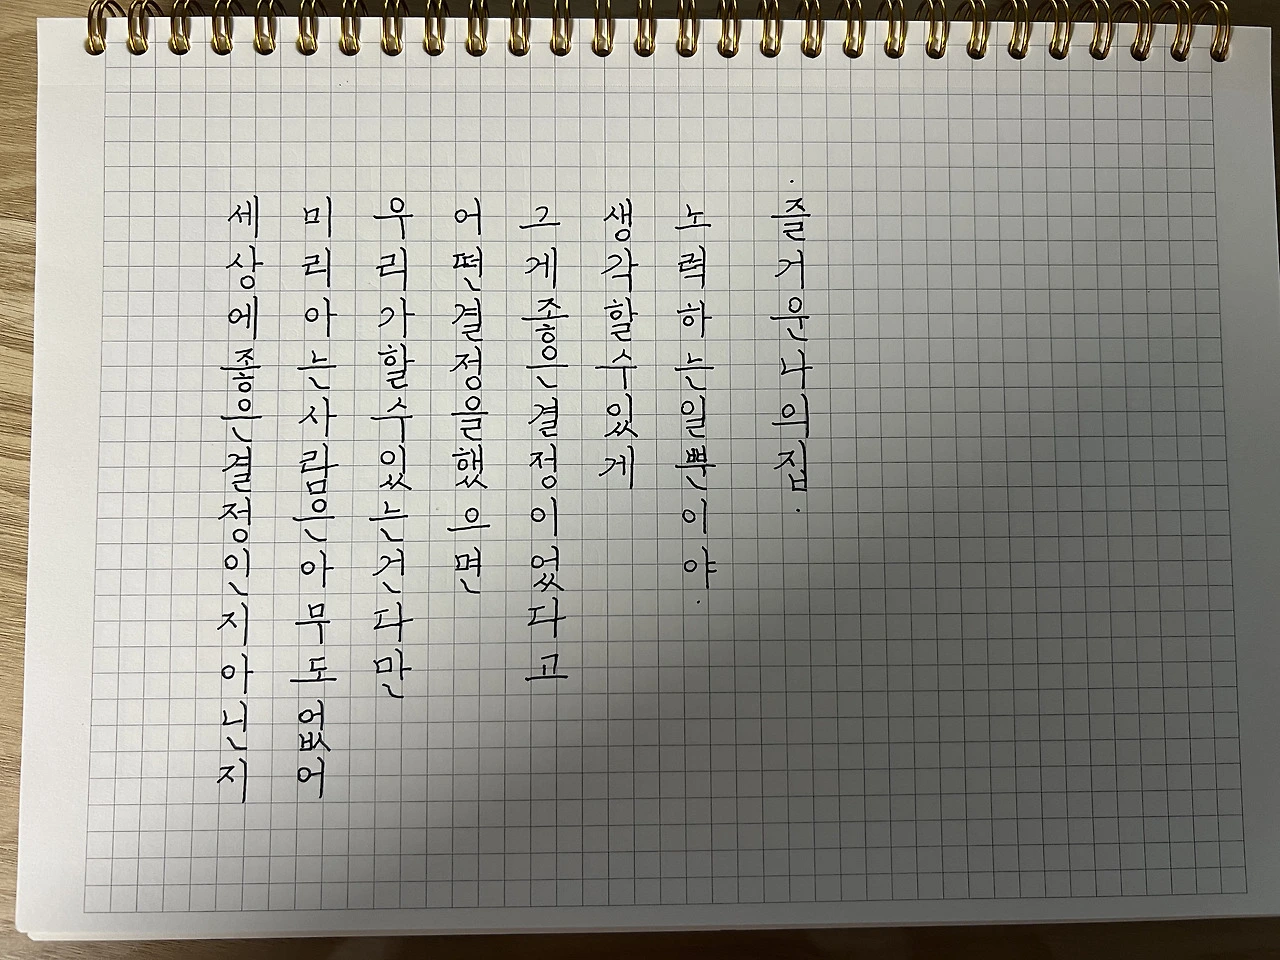 세상에좋은결정인지아닌지
미리아는사람은아무도없어
우리가할수있는건다만
어떤결정을했으면
그게좋은결정이었다고
생각할수있게
노력하는일뿐이야.
·즐거운나의집·